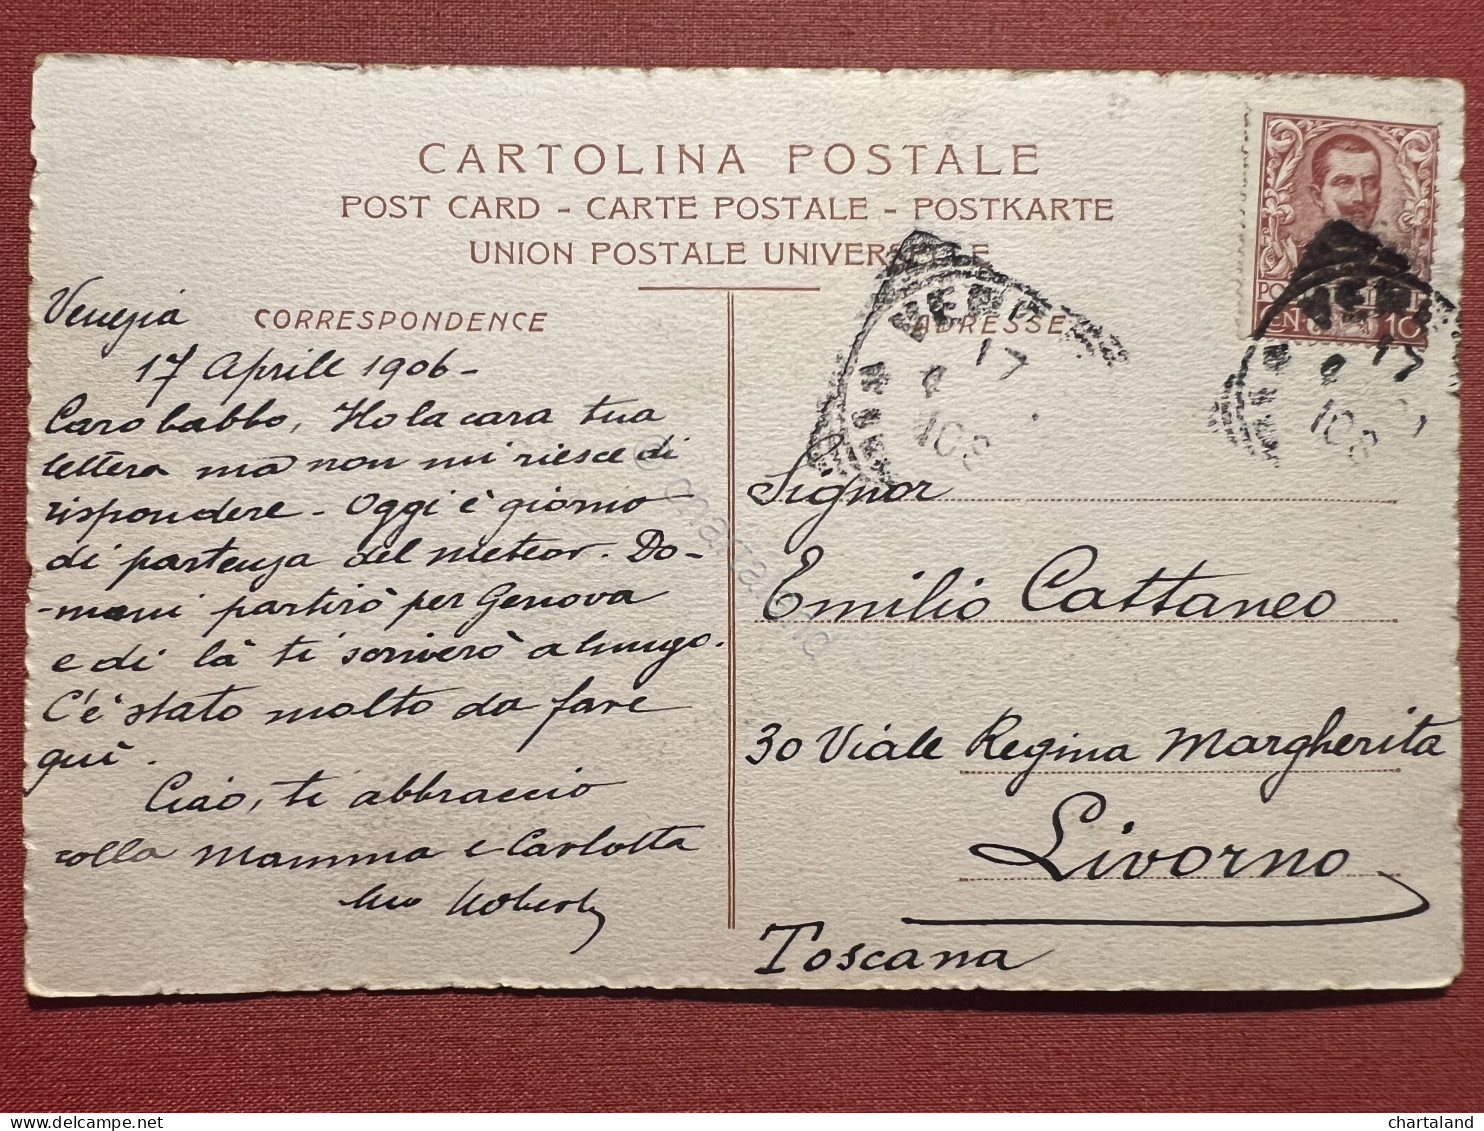 CARTOLINA POSTALE
POST CARD - CARTE POSTALE - POSTKARTE
UNION POSTALE UNIVERSELLE
CORRESPONDENCE
ADRESSE
Venezia
17 Aprile 1906 -
Caro babbo, Ho la cara tua
lettera ma non mi riesce di
rispondere - Oggi è giorno
di partenza del meteor. Do-
-mani partirò per Genova
e di là ti scriverò a lungo.
C'è stato molto da fare
quì.
Ciao, ti abbraccio
colla Mamma e Carlotta
tuo Roberto
Signor
Emilio Cattaneo
30 Viale Regina Margherita
Livorno
Toscana
10
17
17
chartaland
delcampe.net
chartaland